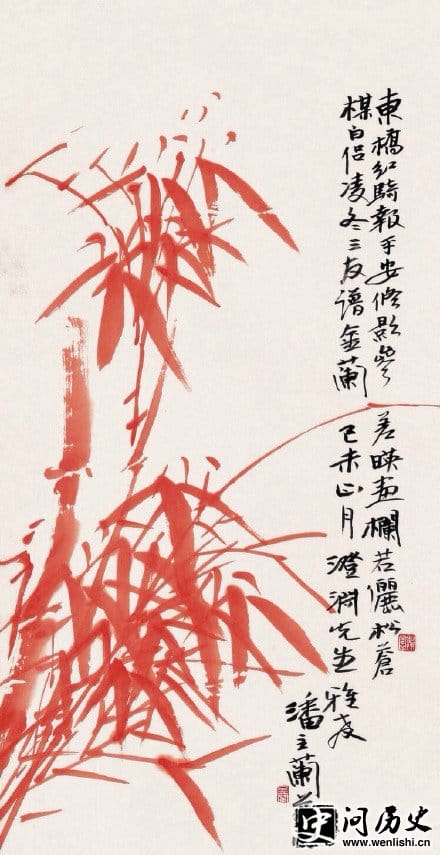 東橋紅騎報平安脩影參差映畫欄若儷松蒼
楳白侶凌冬三友譜金蘭 己未正月 澄 先生雅教
潘主蘭
问历史
www.wenlishi.cn